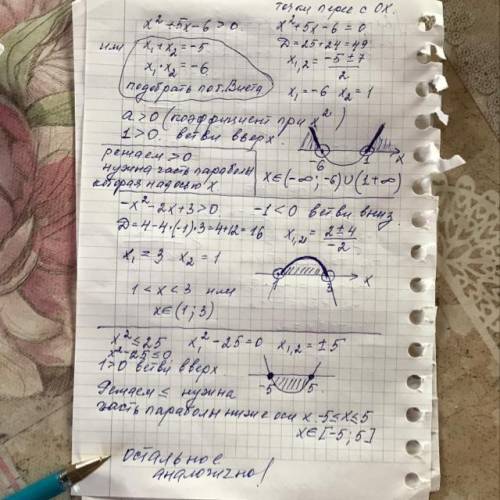 точки перес с OX.
x² + 5x - 6 > 0   x² + 5x - 6 = 0
или x₁ + x₂ = -5   D = 25 + 24 = 49
x₁ · x₂ = -6   x₁,₂ = (-5 ± 7)/2
подобрать по т. Виета   x₁ = -6  x₂ = 1
a > 0 (коэффициент при x²)
1 > 0. ветви вверх
-6  1  x
решаем > 0
нужна часть параболы
которая над осью x   x∈(-∞; -6)∪(1 +∞)
-x² - 2x + 3 > 0   -1 < 0 ветви вниз
D = 4 - 4·(-1)·3 = 4 + 12 = 16   x₁,₂ = (2 ± 4)/-2
x₁ = 3  x₂ = 1
x
1 < x < 3 или
x∈(1; 3)
x² ≤ 25   x² - 25 = 0   x₁,₂ = ±5
x² - 25 ≤ 0
1 > 0 ветви вверх
-5  5
≤ нужна
часть параболы ниже оси x -5 ≤ x ≤ 5
x∈[-5; 5]
остальное
аналогично!